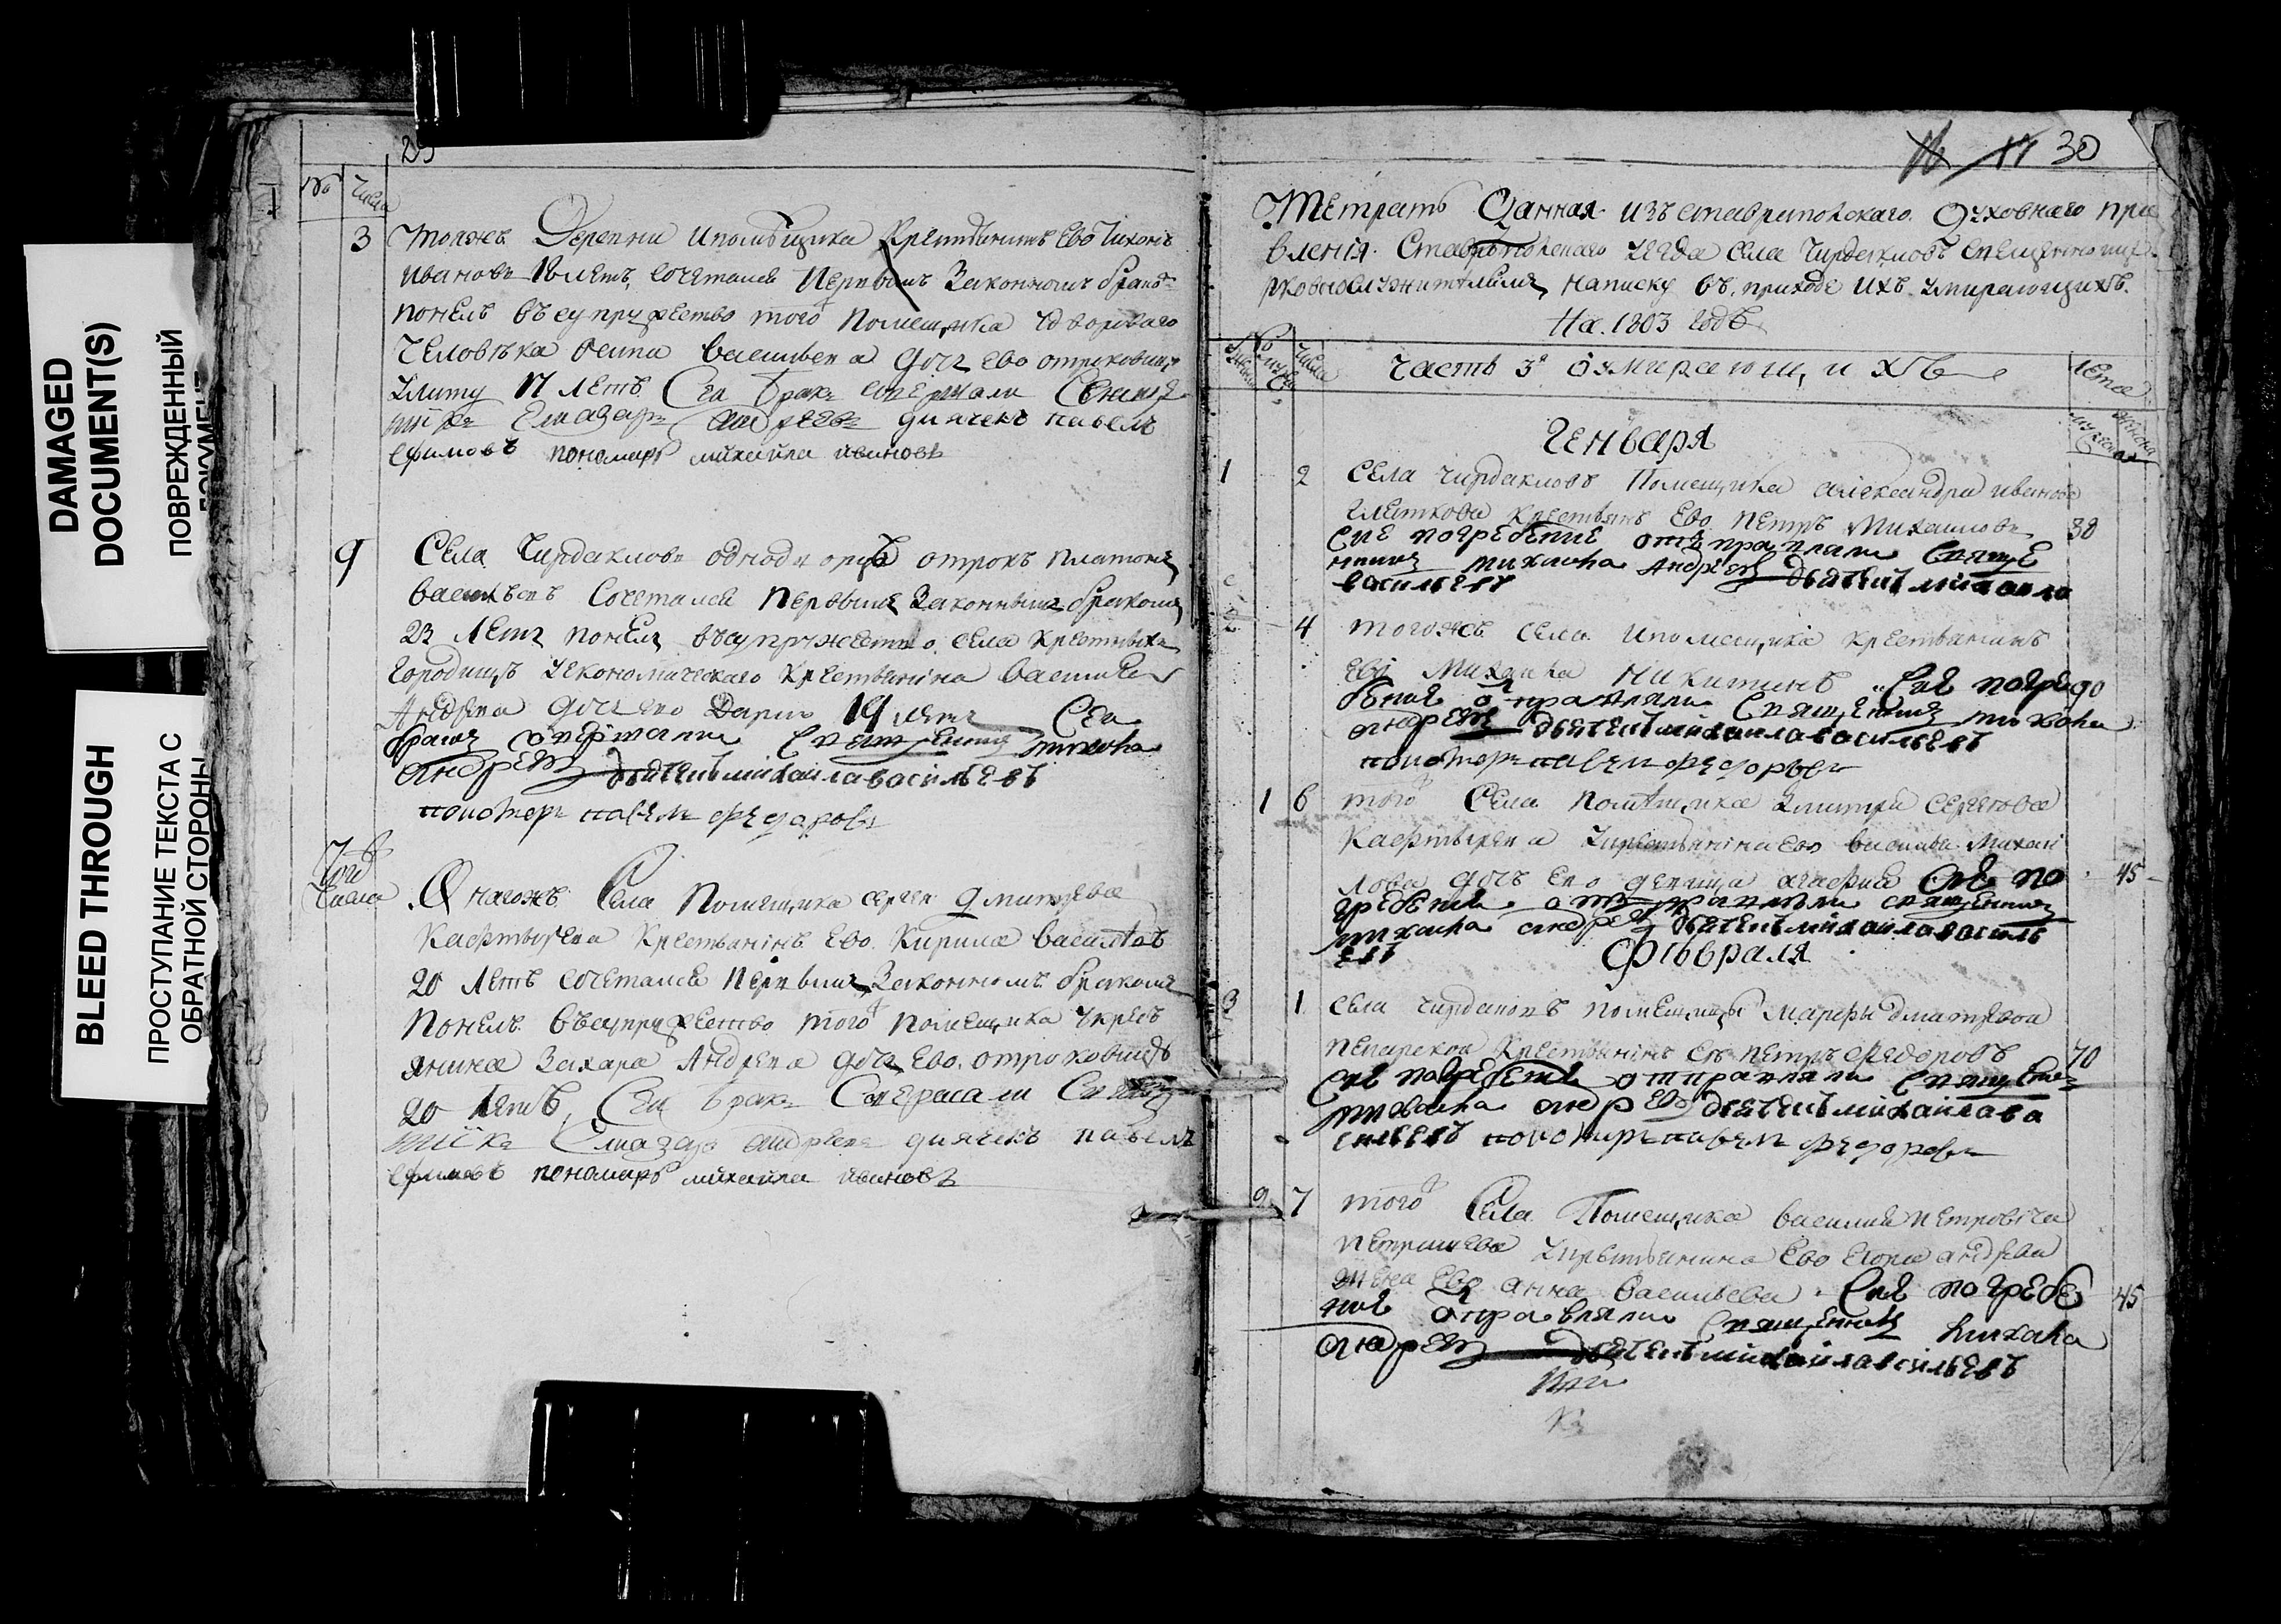 DAMAGED
DOCUMENT(S)
ПОВРЕЖДЕННЫЙ
ДОКУМЕНТ
BLEED THROUGH
ПРОСТУПАНИЕ ТЕКСТА С
ОБРАТНОЙ СТОРОНЫ
29
№ Числа
3 тояжъ Деревни ипомѣщика крестьянинъ Ево Тихонъ
ивановъ лѣтъ, сочетался Первымъ Законнымъ бракомъ
понелъ въсупружество того помещика
человѣка осипа васильева дочь ево
17 летъ Сеи бракъ
Елиазаръ андреевъ дьячекъ павелъ
ефимовъ пономарь михаила ивановъ
9 Села Чирдакловъ однодворецъ отрокъ платонъ
васильевъ Сочетался первымъ Законнымъ бракомъ
23 летъ понелъ въсупружество села крестовыхъ
городищъ уекономическаго крестьянина василья
Андрева дочь ево Дарью 19 летъ Сеи
бракъ михаила
андреевъ дьячекъ михаила васильевъ
пономарь павелъ федоровъ
7 г
числа Онагожъ Села Помещика сергея дмитрева
крестьянинъ Ево Кирила васильевъ
20 летъ сочетался первымъ Законнымъ бракомъ
Понелъ въсупружество того помещика укресть
янина Захара Андрева дочь Ево
20 летъ, Сеи бракъ
Елиазаръ андреевъ дьячекъ павелъ
ефимовъ пономарь михаила ивановъ
17 30
Тетрать Данная изъ ставрапольскаго Духовнаго пра
вления Ставропольскаго уезда села Чирдаклов священноцер
ковнослужителямъ написку въ приходе ихъ умирающихъ
На 1803 годъ
№ Числа Часть 3я о умирающихъ Лета
мужеска женска
Генваря
1 2 Села чирдакловъ Помещика александра иванова
крестьянинъ Ево петръ Михаиловъ 38
Сие погребение отправляли Свяще
нникъ михаила андреевъ дьячекъ михаила
васильевъ
2 4 тогожъ села ипомещика крестьянинъ
Ево Михаила Никитинъ Сие погре 90
бение отправляли Священникъ михаила
андреевъ дьячекъ михаила васильевъ
пономарь павелъ федоровъ
1 6 того Села помещика Дмитрия Сергеева
укрестьянина ево василья Михаи
лова дочь ево девица агафия Сие по 45
гребение отправляли священникъ
михаила андреевъ дьячекъ михаила василь
евъ Февраля
3 1 села чирдаклов помещицы Марфы дмитревой
крестьянинъ Ея петръ федоровъ 70
Сие погребение отправляли священникъ
михаила андреевъ дьячекъ михаила ва
сильевъ пономарь павелъ федоровъ
2 7 того Села Помещика василия петровича
укрестьянина Ево Егора андрева
жена Ево анна васильева Сие погребе 45
ние отправляли священникъ михаила
андреевъ дьячекъ михаила васильевъ